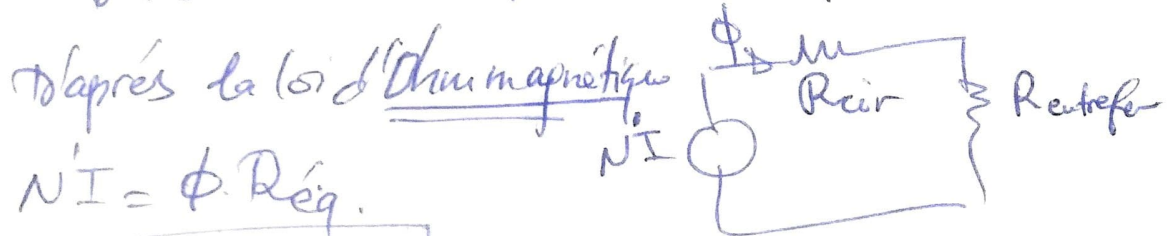 D'après la loi d'Ohm magnétique
Φ
Rcir
Rentrefer
NI
NI = Φ. Réq.